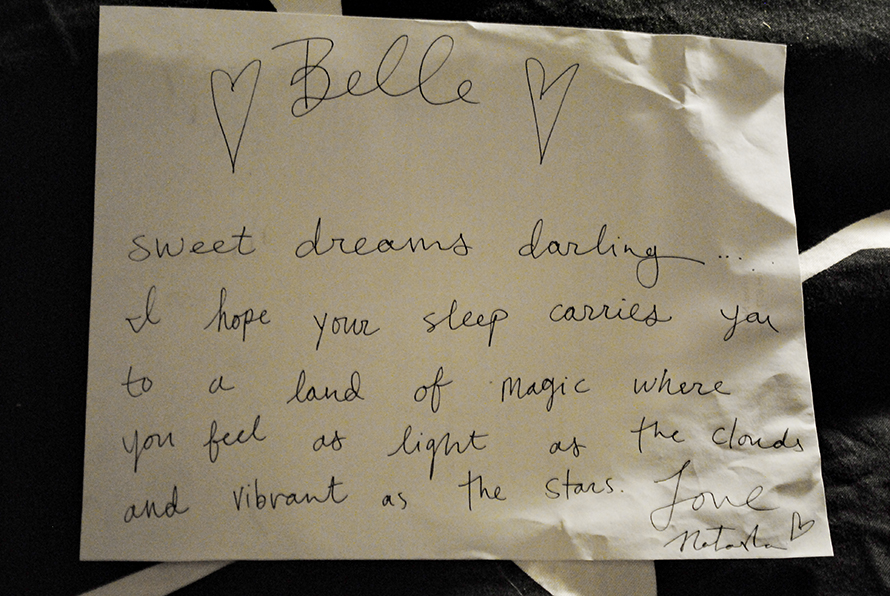 Belle
sweet dreams darling......
I hope your sleep carries you
to a land of magic where
you feel as light as the clouds
and vibrant as the stars. Love
Natasha